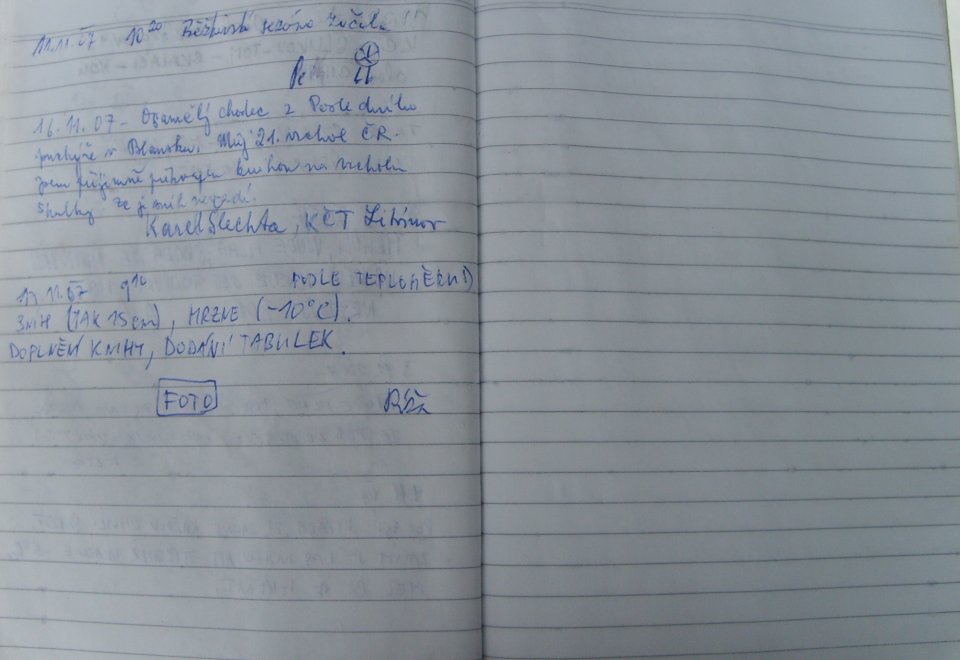 11.11.07 10²⁰ Běžkařská sezóna začala
Petr
16.11.07 - Osamělý chodec z Posledního
puchýře v Blansku. Můj 21. vrchol ČR.
Jsem příjemně překvapen knihou na vrcholu
škoda, že
Karel Šlechta, KČT Litvínov
17.11.07 9¹⁰ PODLE TEPLOMĚRU!)
SNÍH (TAK 15cm), MRZNE (-10°C).
DOPLNĚNÍ KNIHY, DODÁNÍ TABULEK.
FOTO